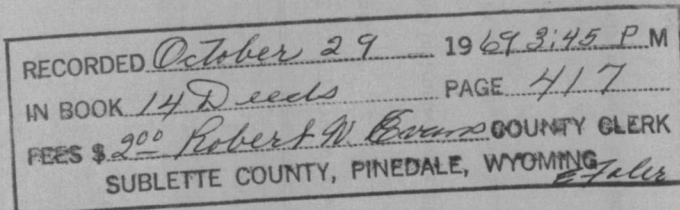 RECORDED October 29 1969 3:45 P M
IN BOOK 14 Deeds PAGE 417
FEES $ 2.00 Robert W. Evans COUNTY CLERK
SUBLETTE COUNTY, PINEDALE, WYOMING